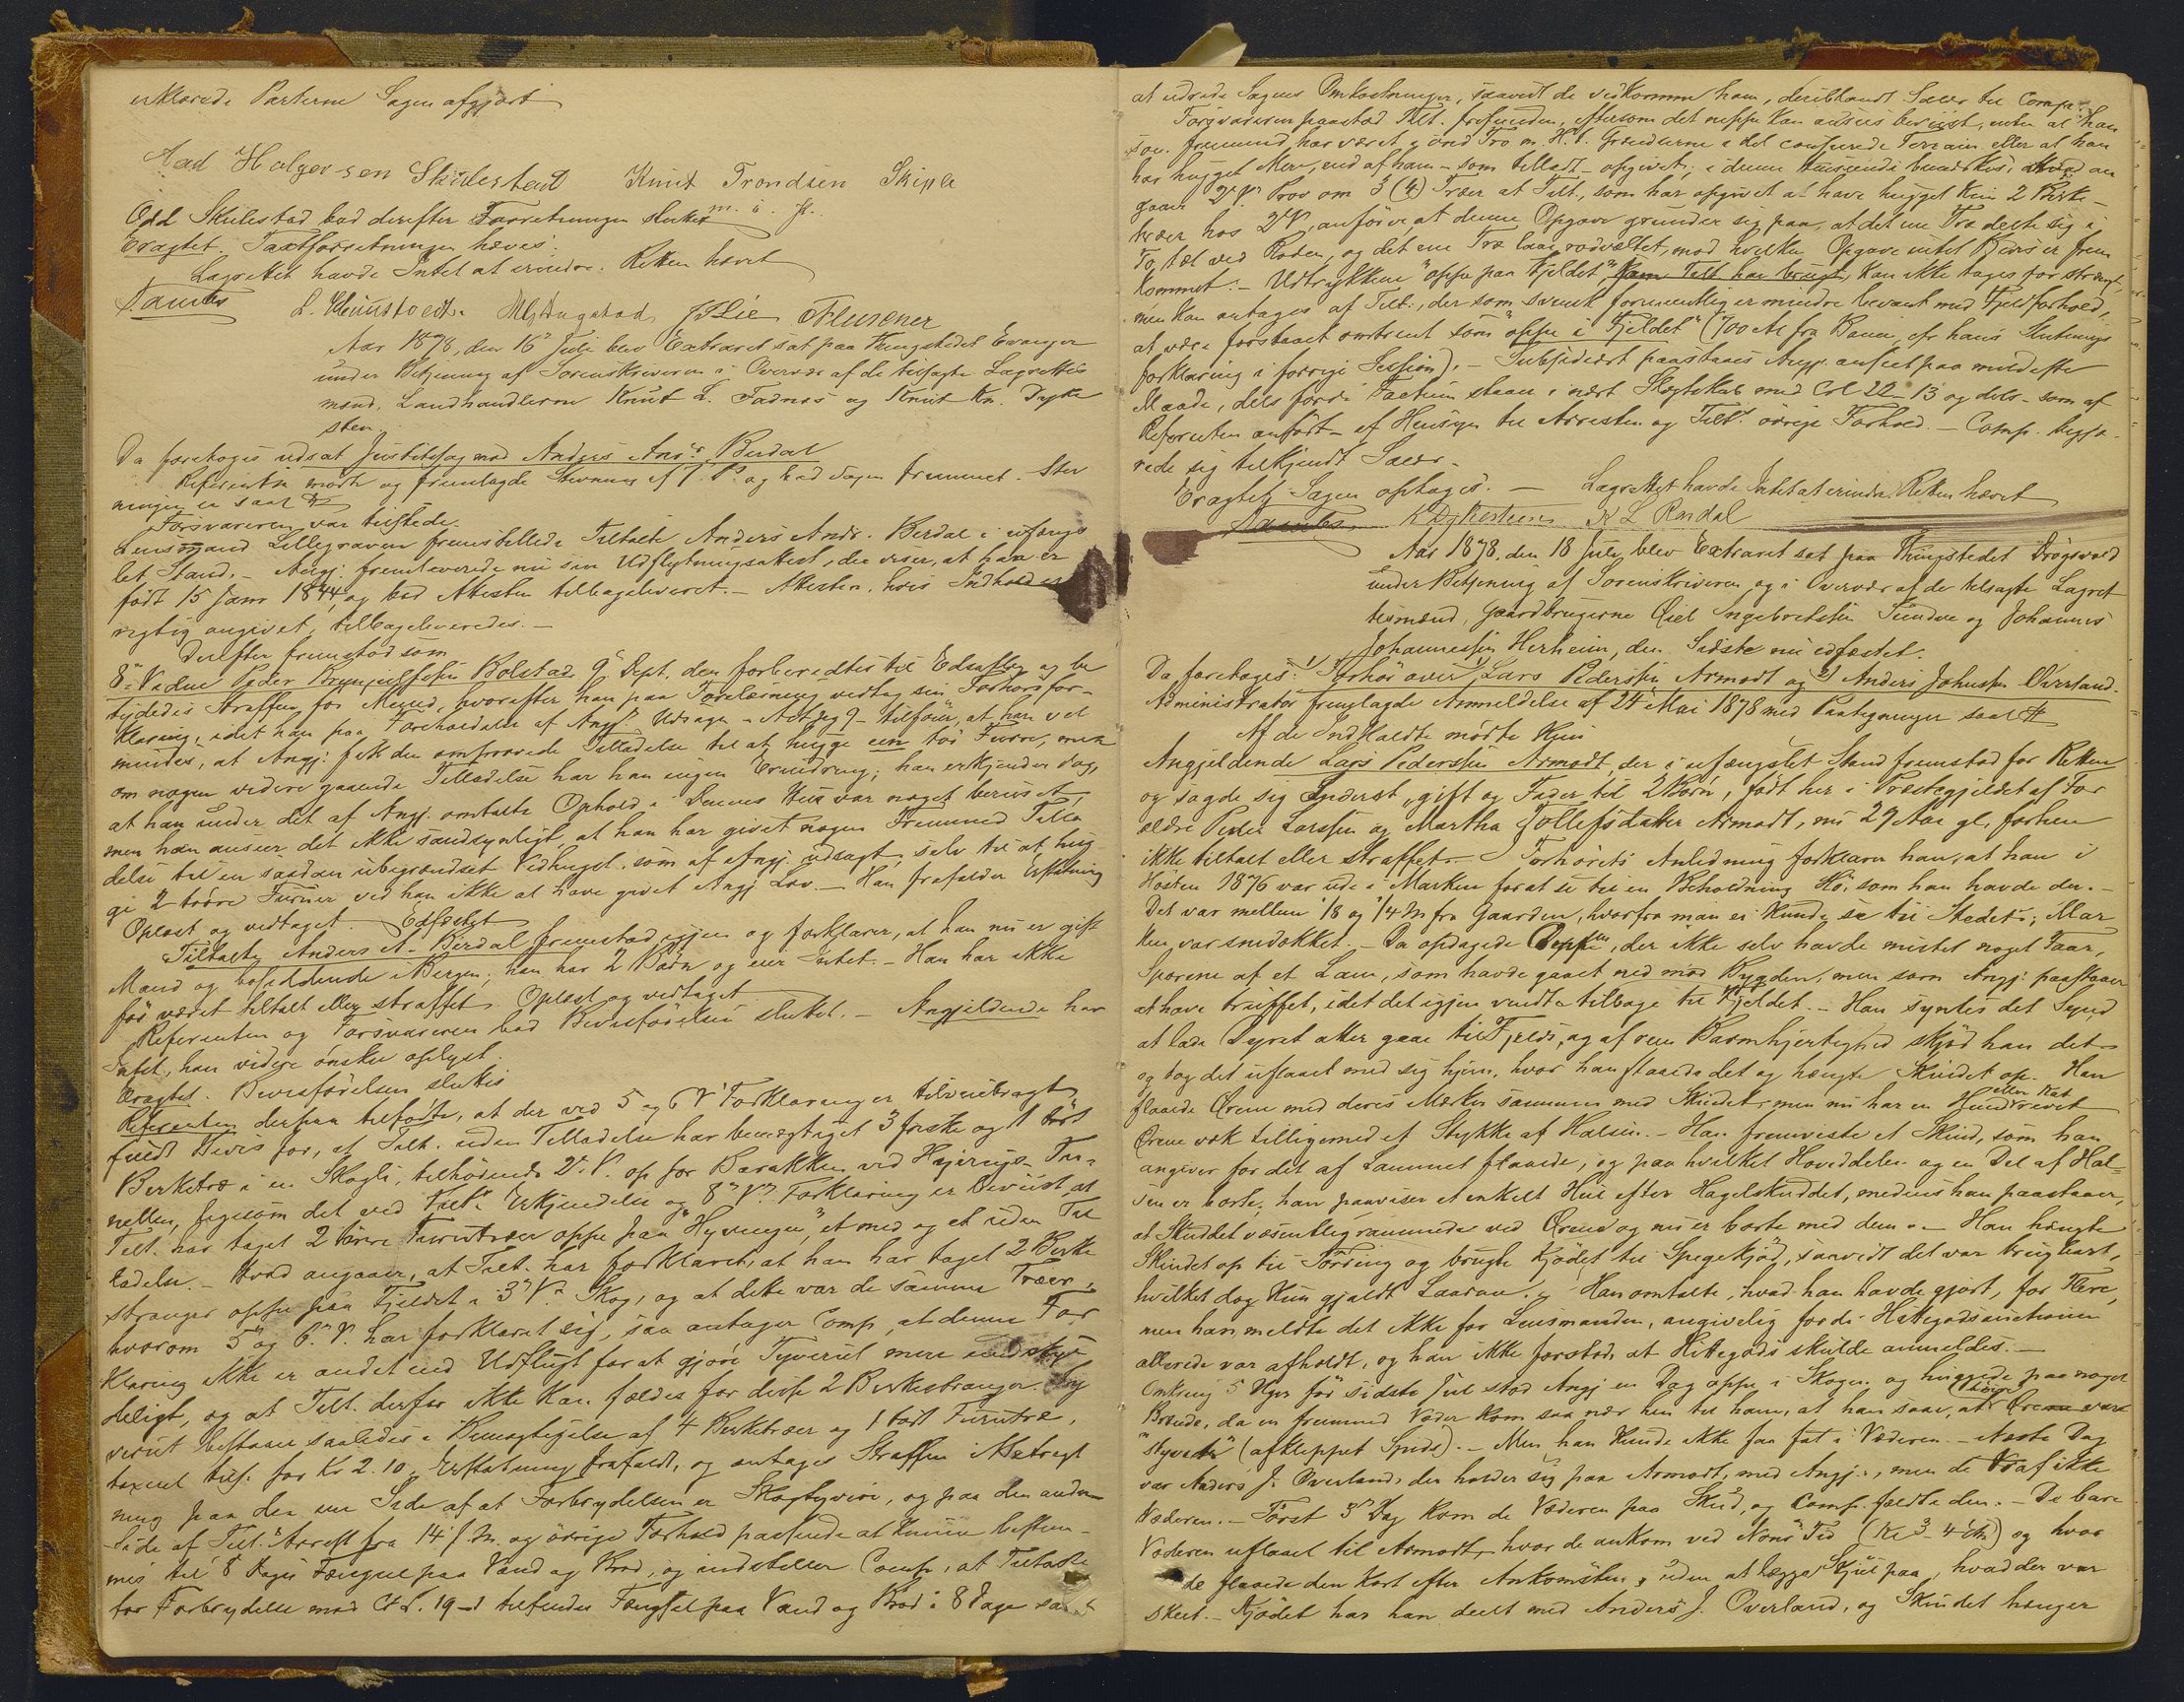 erklærede Parterne Sagen afgjort
Aad Holgersen Skulestad Knut Trondsen Skiple
m. i. P.
Odd Skulestad bad derefter Forretningen sluttet
Eragtet. Taxtforretningen hæves.
Lagrettet havde Intet at erindre. Retten hævet
Aar 1878, den 16de Juli blev Extraret sat paa Thingstedet Evanger
under Betjening af Sorenskriveren i Overvær af de tilsagte Lagrettes
mænd, Landhandlerne Knut L. Fadnæs og Knut Kn. Dyke
sten.
Da foretoges udsat Justitssag mod Anders Ands Berdal
Referenten mødte og fremlagde Stevning af f. P. og bad Sagen fremmet. Stev
ningen er saal #
Forsvareren var tilstede.
Lensmand Lillegraven fremstillede Tiltalte Anders Ands. Berdal i ufængs
let Stand. – Angj. fremleverede nu sin Udflytningsattest, der viser, at han er
født 15 Janr 1844, og bad Attesten tilbageleveret. – Attesten, hvis Indhold er
rigtig angivet, tilbageleveredes. –
Derefter fremstod som
8de Vidne Peder Brynjulfsen Bolstad 9de Dept. den forberedtes til Edsaflæg og be
tydedes Straffen for Mened, hvorefter han paa Forelæsning vedtog sin Forhørsfor-
klaring, idet han paa Foreholdelse af Angj. Udsagn – Act pag 9 – tilføier, at han vel
mindes, at Angj. fik den omprovede Tilladelse til at hugge een tør Furre, men
om nogen videre gaaende Tilladelse har han ingen Erindring; han erkjender dog,
at han under det af Angj. omtalte Ophold i Dennes Hus var noget beruset,
men han anseer det ikke sandsynligt at han har givet nogen Fremmed Tilla
delse til en saadan ubegrændset Vedhugst som af Angj. udsagt, selv til at hug
ge 2 tørre Furuer ved han ikke at have givet Angj Lov. – Han frafalder Erstatning
Oplæst og vedtaget. Edfæstet
Tiltalte Anders A. Berdal fremstod igjen og forklarer, at han nu er gift
Mand og bosiddende i Bergen; han har 2 Børn og eier Intet. – Han har ikke
før været tiltalt eller straffet. Oplæst og vedtaget
Referenten og Forsvareren bad Bevisførelsen sluttet. – Angjeldende har
Intet, han videre ønsker oplyst.
Eragtet. Bevisførelsen sluttes
Referenten derpaa tilførte, at der ved 5 og 6 V Forklaringer tilveiebragt
fuldt Bevis for, at Tilt. uden Tilladelse har bemægtiget 3 friske og 1 tørt
Berketræ i en Skogli, tilhørende 2det V. op for Barakken ved Hyernes Tun-
nellen, ligesom det ved Tilts Erkjendelse og 8de Vs Forklaring er beviist, at
Tilt. har taget 2 tørre Furutræer oppe paa "Hyrnegen", et med og et uden Til
ladelse. – Hvad angaaer, at Tilt. har forklaret, at han har taget 2 Berke
stranger oppe paa Fjeldet i 3de Vs Skog, og at dette var de samme Træer,
hvorom 5de og 6te V. har forklaret sig, saa antager Comp. at denne For
klaring ikke er andet end Udflugt for at gjøre Tyveriet mere undskyl
deligt, og at Tilt. derfor ikke kan fældes for disse 2 Berkestranger. Ty
veriet bestaar saaledes i Bemægtigelse af 4 Berketræer og 1 tørt Furutræ,
taxeret tils. for Kr 2.10. Erstatning frafaldt, og antages Straffen i Betragt
ning paa den ene Side af at Forbrydelsen er Skogtyveri, og paa den anden
Side af Tilts Arrest fra 14 f. M. og øvrige Forhold passende at kunne bestem-
mes til 8 Dages Fængsel paa Vand og Brød, og indstiller Comp, at Tiltalte
for Forbrydelse mod Cr L. 19-1 tilfindes Fængsel paa Vand og Brød i 8 Dage samt
at udrede Sagens Omkostninger, saavidt de vedkomme ham, deriblandt Salær til Comp.
Forsvareren paastod Tilt. frifunden, eftersom det neppe kan ansees bevist, enten at han
som fremmed har været i ond Tro m. H. t. Grændserne i det coupeerede Terrain eller at han
har hugget Mere, end af ham – som tilladt – opgivet; i denne Henseende bemærkes, hvad an
gaaer 2 Vs Prov om 3 (4) Træer at Tilt., som har opgivet at have hugget kun 2 Berke-
træer hos 2 V, anfører, at denne Opgave grunder sig paa, at det ene Træ delte sig i
To tæt ved Roden, og det ene Træ laae rodvæltet, mod hvilken Opgave intet Bevis er frem
kommet. – Udtrykkene "oppe paa Fjeldet", som Tilt har brugt, kan ikke tages for strængt,
men kan antages af Tilt., der som svensk formentlig er mindre bevant med Fjeldforhold,
at være forstaaet omtrent som "oppe i Fjeldet" (700 Al fra Banen, efr hans Slutnings
forklaring i forrige Session). – Subsidiært paastaaes Angj. anseet paa mildeste
Maade, dels fordi Factum staaer i nært Slægtskab med Crl 22-13 og dels – som af
Referenten anført – af Hensyn til Arresten og Tilts øvrige Forhold. – Comp. begjæ-
rede sig tilkjendt Salær.
Eragtet Sagen optages. – Lagrettet havde Intet at erindre. Retten hævet
K Dykesteen K L Rondal
Aar 1878, den 18 Juli, blev Extraret sat paa Thingstedet Drøgsvold
under Betjening af Sorenskriveren og i Overvær af de tilsagte Lagret
tesmænd, Gaardbrugerne Ø Ingebretsen Tundre og Johannes
Johannessen Herheim, den Sidste nu edfæstet.
Da foretoges: 1) Forhør over 1) Lars Pederssen Armodt og 2) Anders Johnsen Øverland.
Administrator fremlagde Anmeldelse af 24de Mai 1878 med Paategninger saal #
Af de Indkaldte mødte kun
Angjeldende Lars Pederssen Armodt, der i ufængslet Stand fremstod for Retten
og sagde sig Inderst, gift og Fader til 2 Børn, født her i Præstegjeldet af For
ældre Peder Larssen og Martha Jollefsdatter Armodt, nu 29 Aar gl, forhen
ikke tiltalt eller straffet. – I Forhørets Anledning forklarer han, at han i
Høsten 1876 var ude i Marken for at se til en Beholdning Hø, som han havde der. –
Det var mellem 1/8 og 1/4 M fra Gaarden, hvorfra man ei kunde se til Stedet; Mar
ken var snedækket. – Da opdagede Depten, der ikke selv havde mistet noget Faar,
Sporene af et Lam, som havde gaaet ned mod Bygden, men som Angj: paastaaer
at have truffet, idet det igjen vendte tilbage til Fjeldet. – Han syntes det Synd
at lade Dyret atter gaae til Fjelds, og af reen Barmhjertighed skjød han det
og tog det uflaaet med sig hjem, hvor han flaaede det og hængte Skindet op. Han
flaaede Ørene med deres Mærker sammen med Skindet, men nu har en Hund eller Kat revet
Ørene væk tilligemed et Stykke af Halsen. – Han fremviste et Skind, som han
angiver for det af Lammet flaaede, og paa hvilket Hoveddelen og en Del af Hal-
sen er borte; han paaviser et enkelt Hul efter Hagelskuddet, medens han paastaaer,
at Skuddet væsentlig rammede ved Ørene og nu er borte med dem. – Han hængte
Skindet op til Tørring og brugte Kjødet til Spegekjød, saavidt det var brugbart,
hvilket dog kun gjaldt Laarene. – Han omtalte, hvad han havde gjort, for Flere,
men han meldte det ikke for Lensmanden, angivelig fordi Hittegodsauctionen
allerede var afholdt, og han ikke forstod, at Hittegods skulde anmeldes. –
Omkring 5 Uger før sidste Jul stod Angj en Dag oppe i Skogen og huggede paa noget
Brænde, da en fremmed Væder kom saa nær hen til ham, at han saae, at Ørene vare
"styvede" (afklippet Spids). – Men han kunde ikke faa fat i Væderen. – Næste Dag
var Anders J. Øverland, der holder sig paa Armodt, med Angj., men de traf ikke
Væderen. – Først 3die Dag kom de Væderen paa Skud, og Comp. fældte den. – De bare
Væderen uflaaet til Armodt, hvor de ankom ved Nons Tid (Kl 3-4 Em) og hvor
de flaaede den kort efter Ankomsten, uden at lægge Skjul paa, hvad der var
skeet. – Kjødet har han deelt med Anders J. Øverland, og Skindet hænger